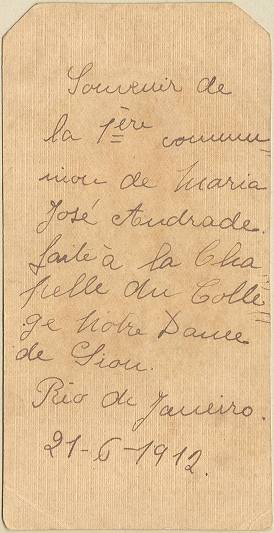 Souvenir de
la 1ère commu=
nion de Maria
José Andrade.
faite à la Cha=
pelle du Collè=
ge Notre Dame
de Sion.
Rio de Janeiro.
21-6-1912.